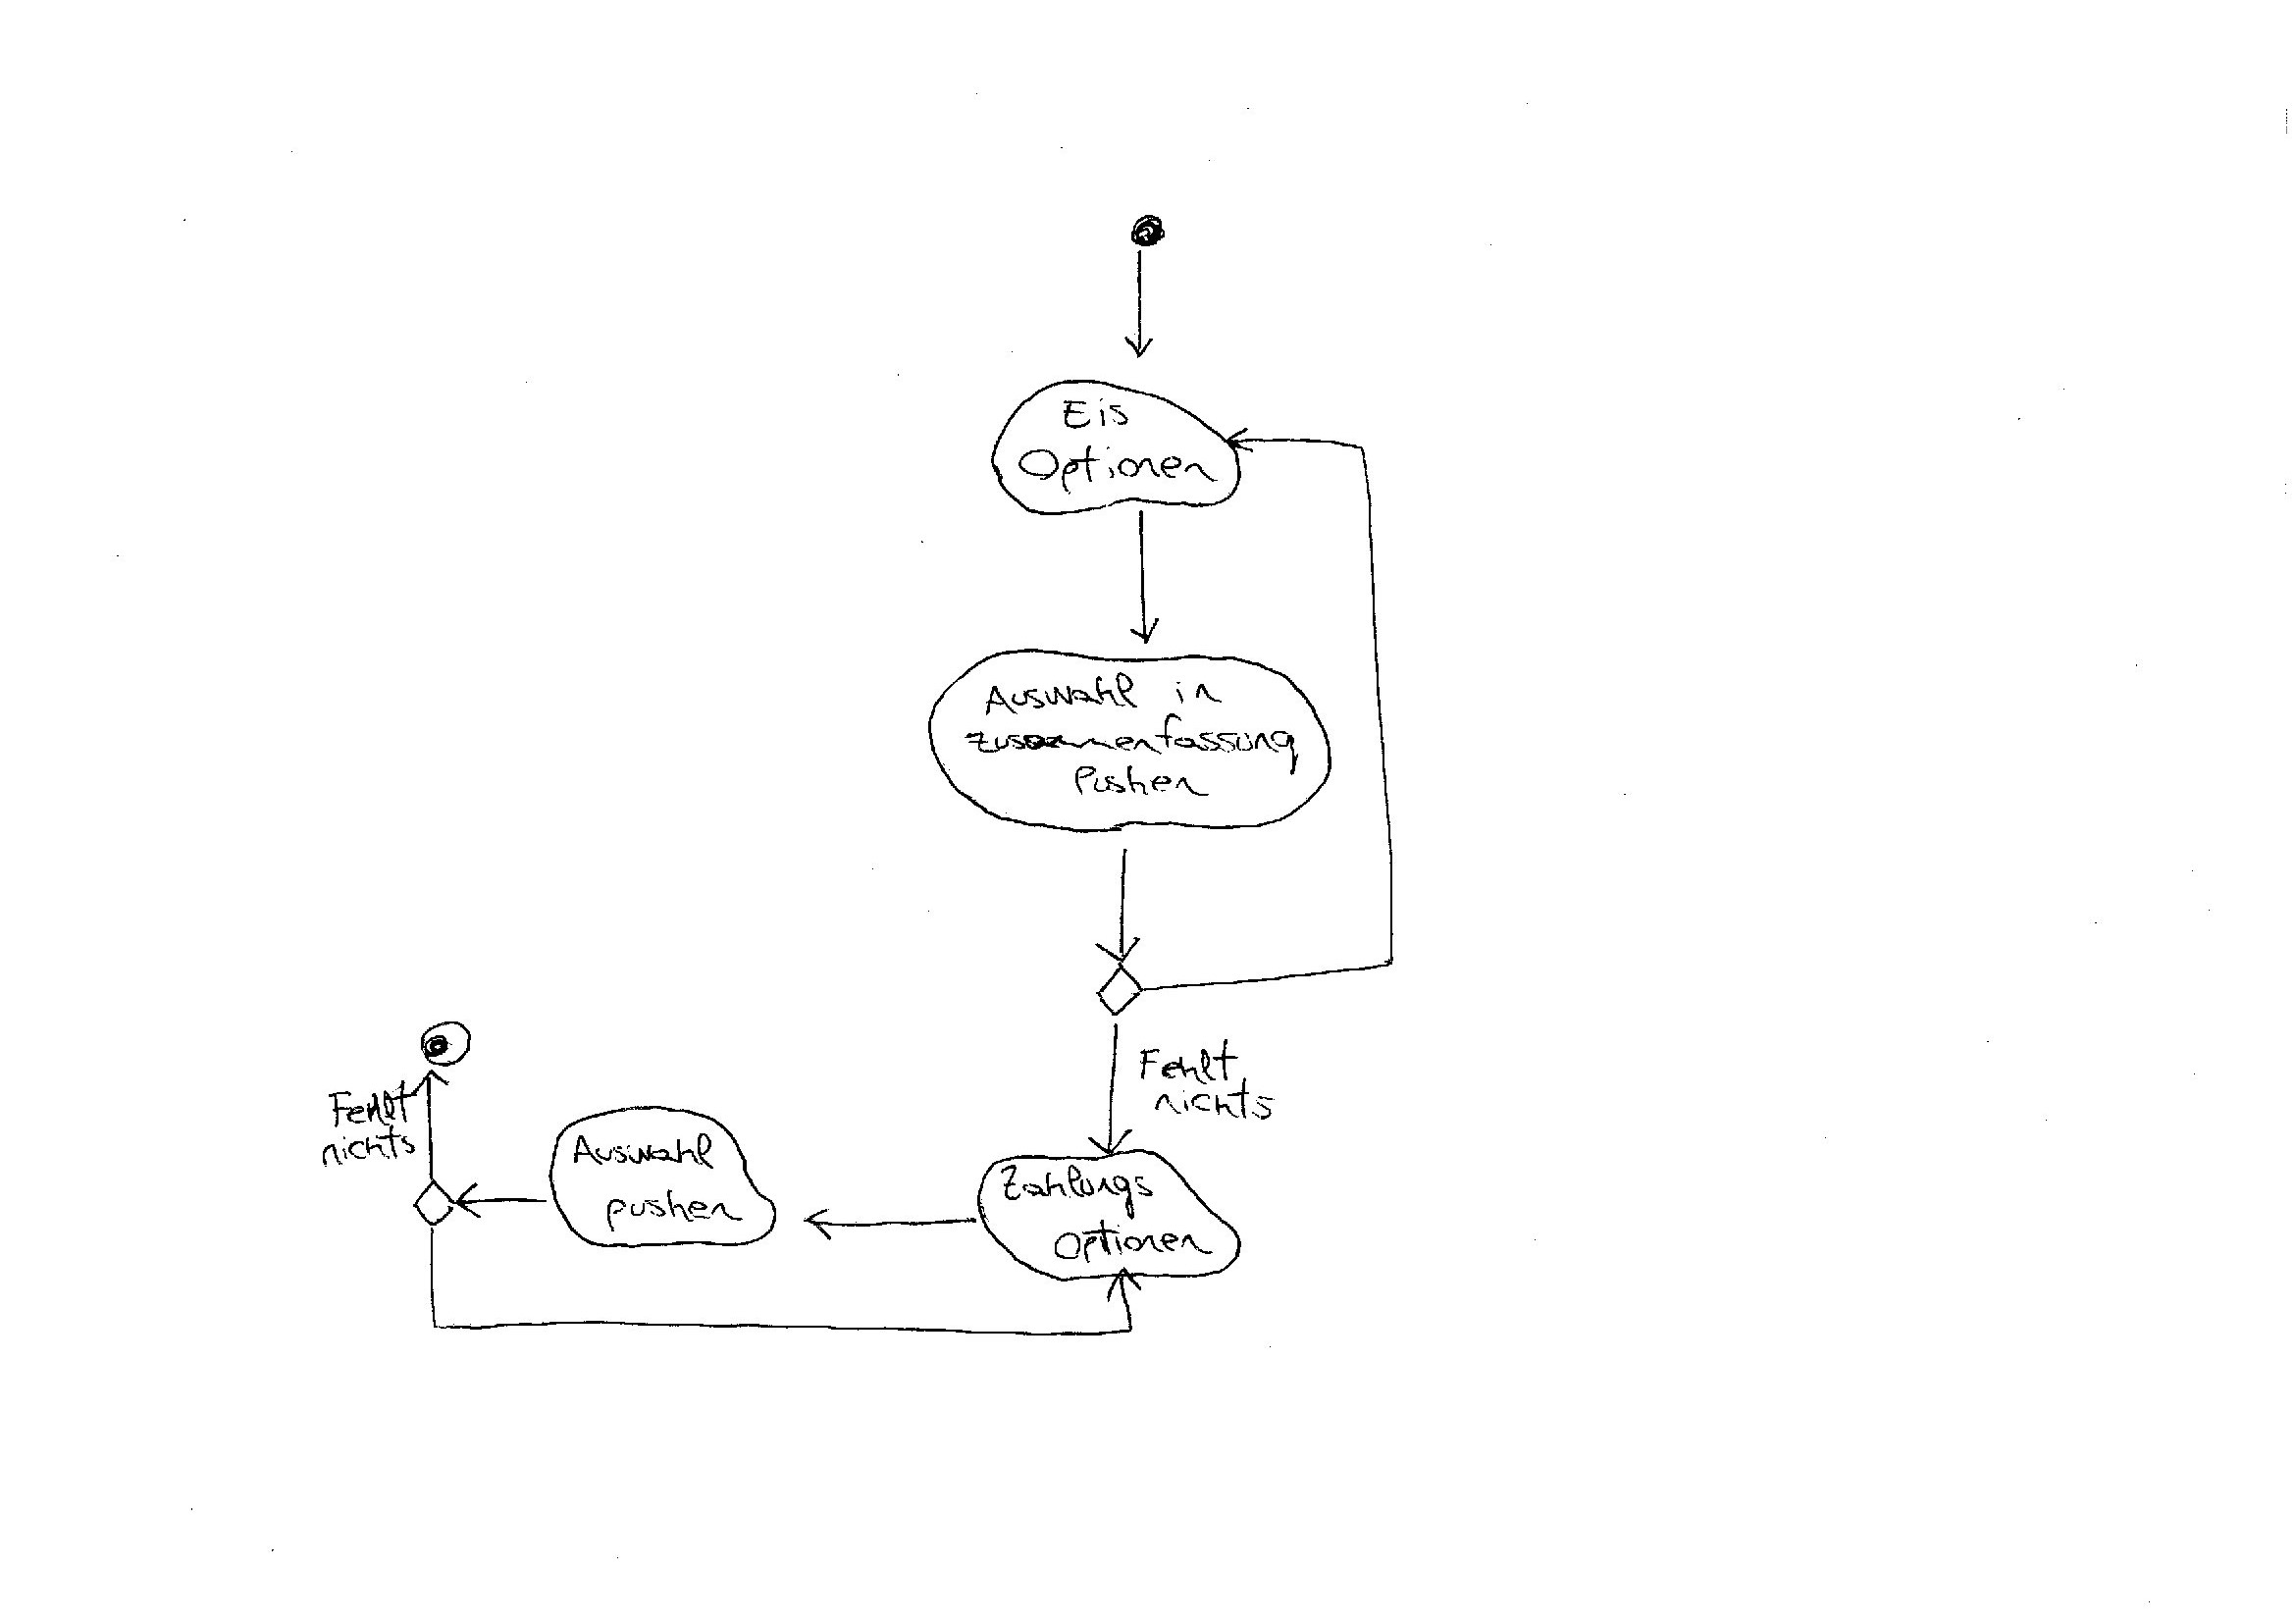 Eis
Optionen
Auswahl in
zusammenfassung
Pushen
Fehlt
nichts
Zahlungs
Optionen
Auswahl
pushen
Fehlt
nichts